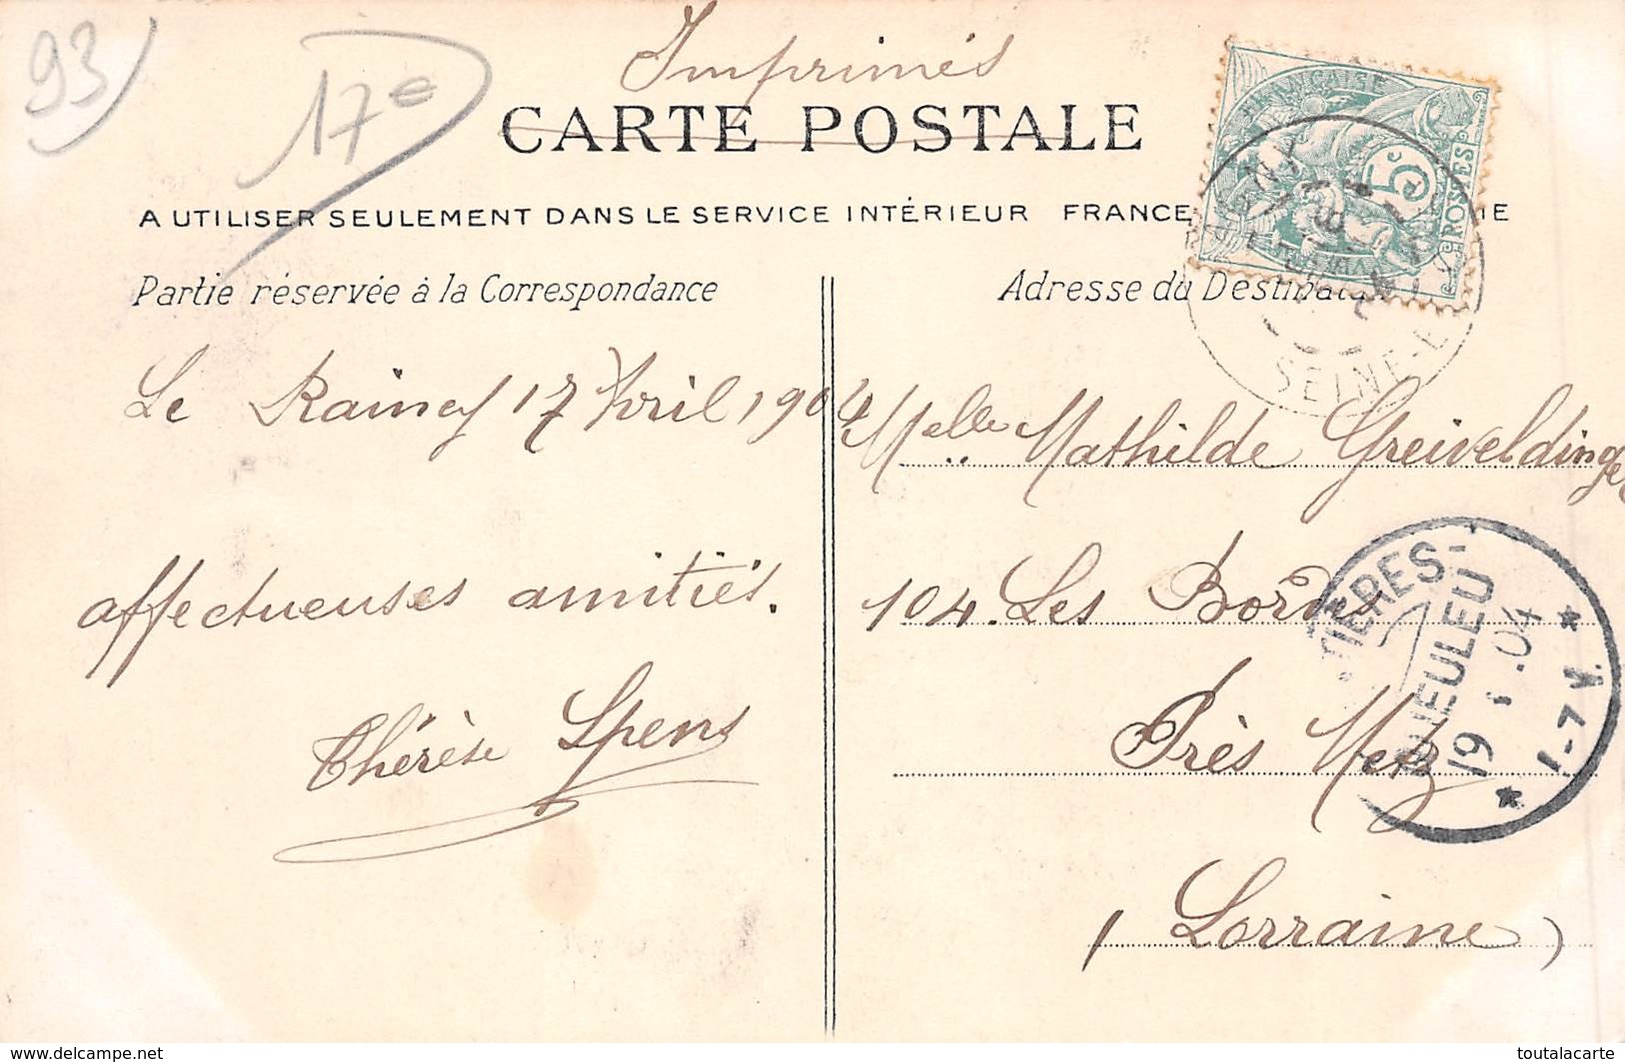 93
17e
Imprimés
CARTE POSTALE
A UTILISER SEULEMENT DANS LE SERVICE INTÉRIEUR FRANCE
Partie réservée à la Correspondance
Adresse du
FRANÇAISE
5c
POSTES
SEINE-
Le Raincy 17 Avril 1904
affectueuses amitiés.
Thérèse Spens
Melle Mathilde Greiveldinger
104. Les Bordes
Près Metz
( Lorraine )
QUEULEU
19 .04
* 1-7 V. *
www.delcampe.net
toutalacarte